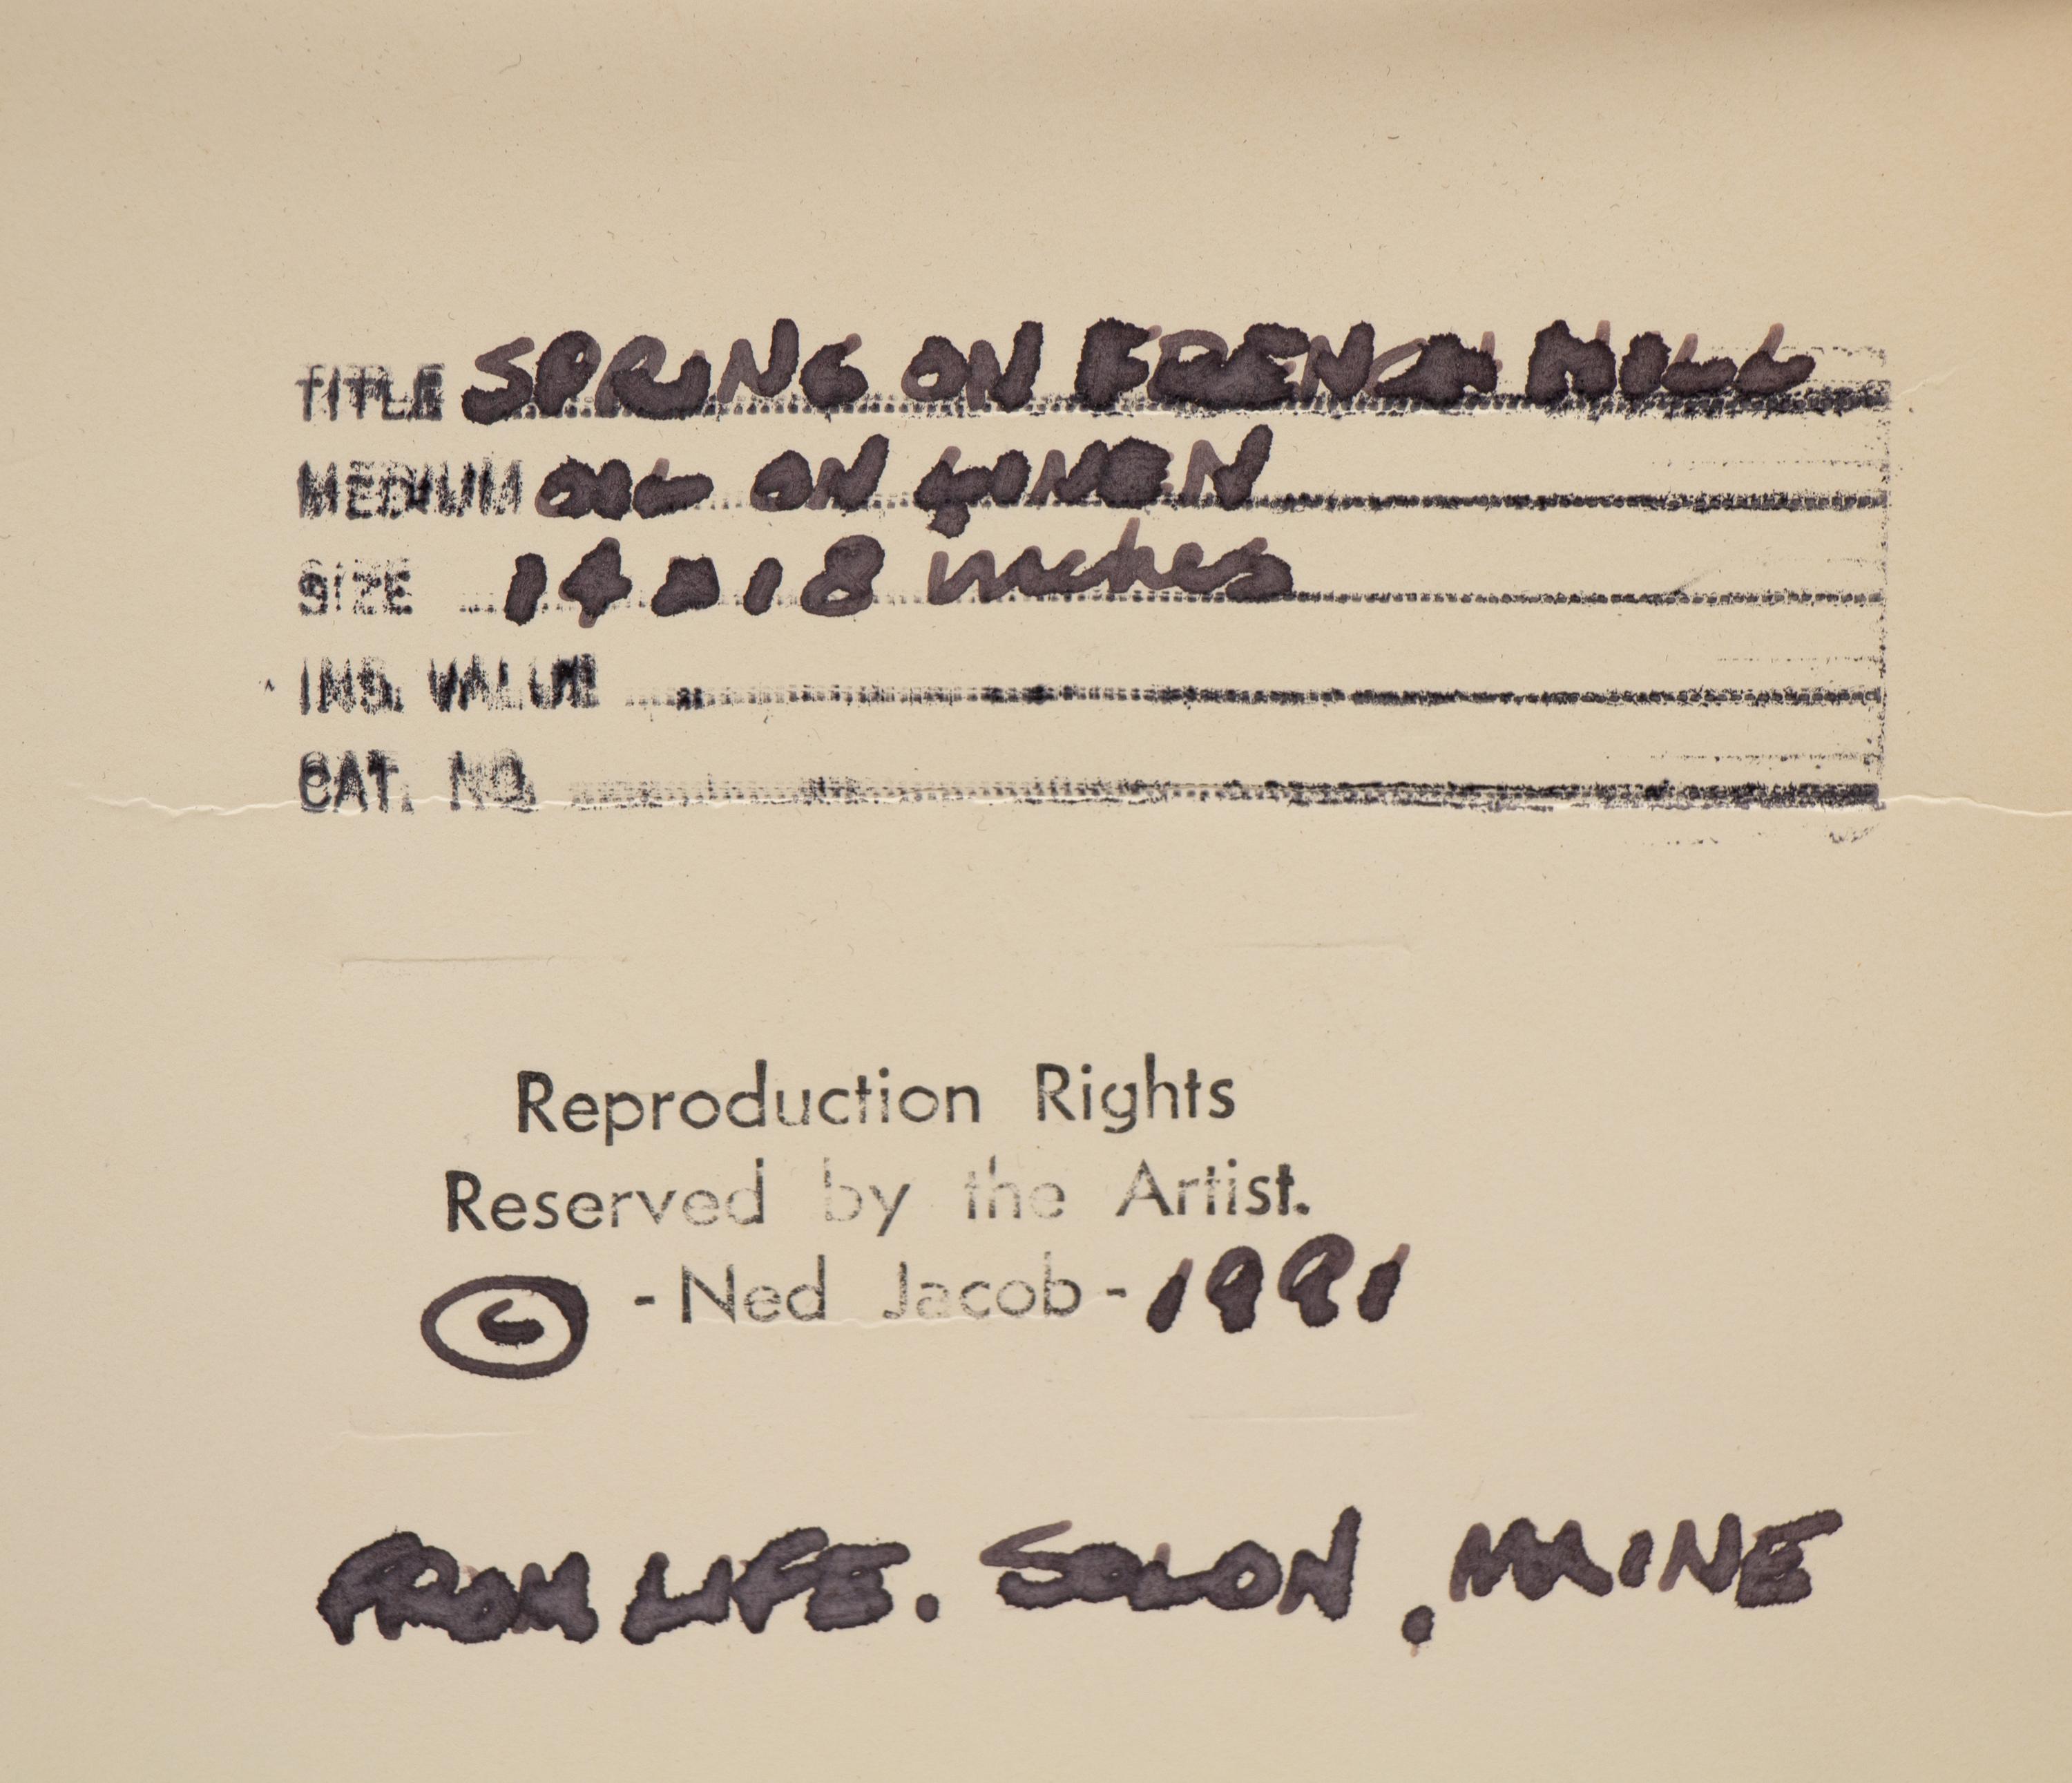 TITLE SPRING ON FRENCH HILL
MEDIUM OIL ON LINEN
SIZE 14 x 18 inches
INS. VALUE
CAT. NO.
Reproduction Rights
Reserved by the Artist.
© -Ned Jacob- 1991
FROM LIFE. SOLON, MAINE